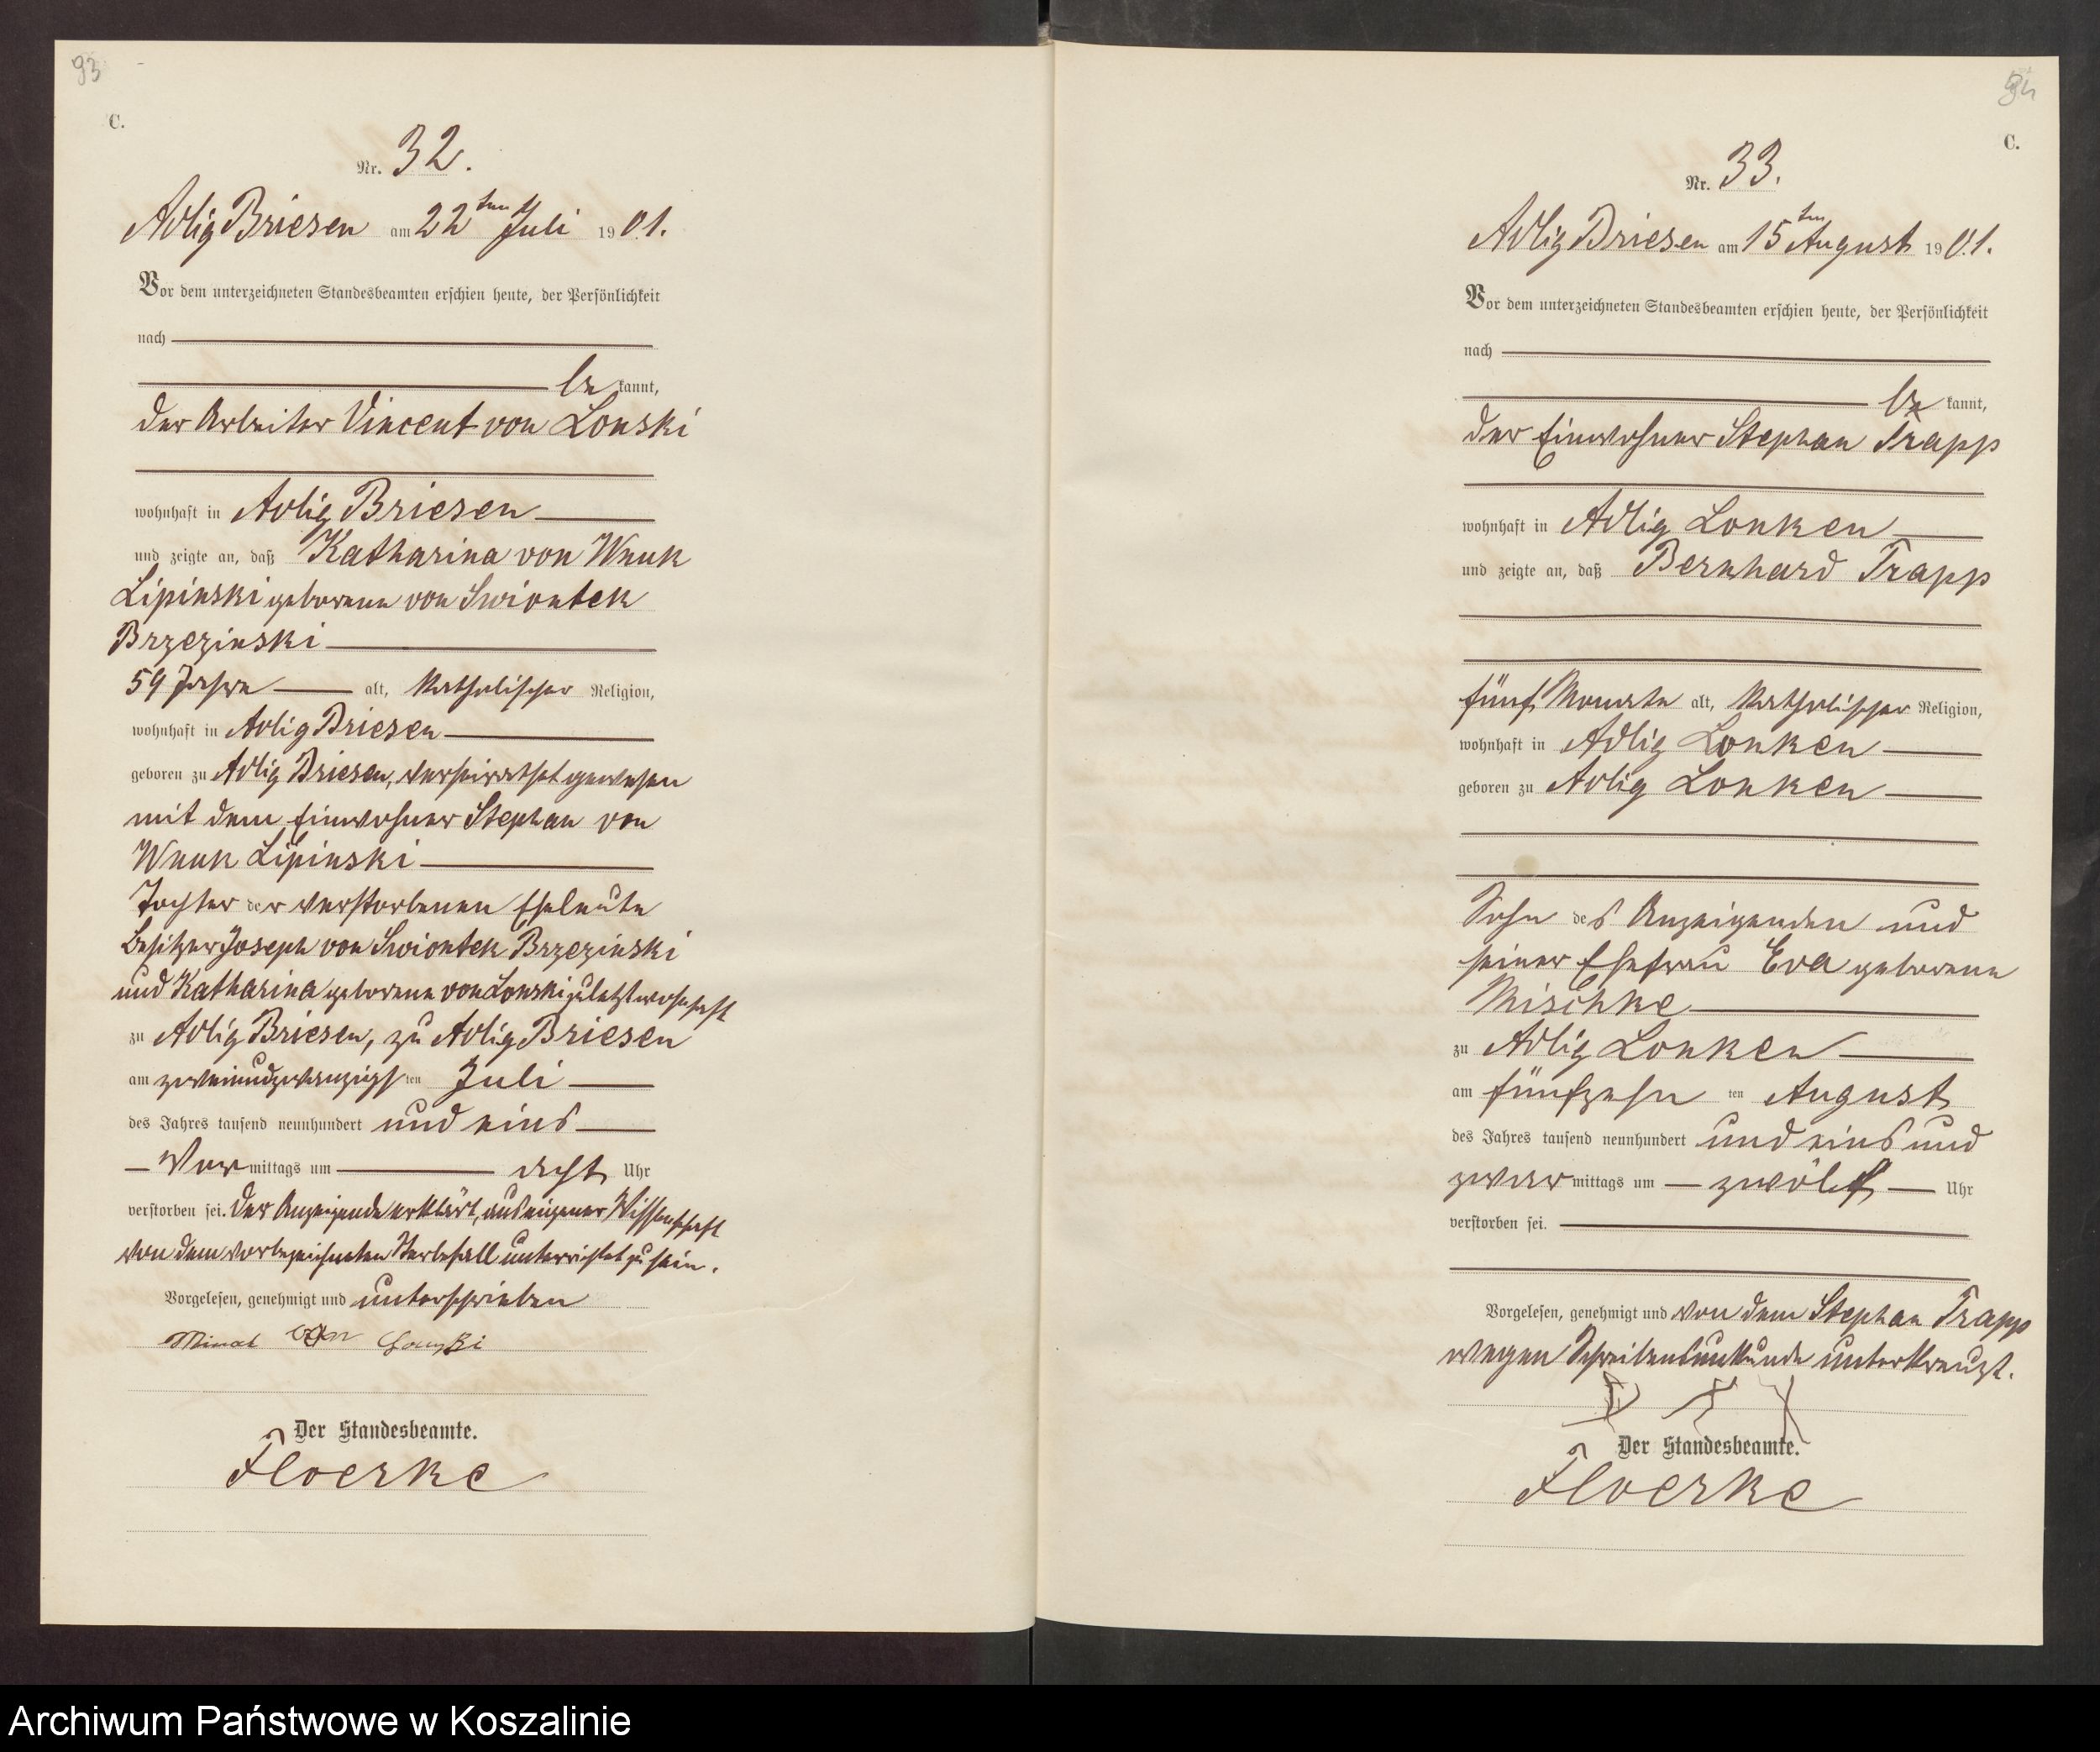 93
C.
Nr. 32.
Adlig Briesen am 22ten Juli 1901.
Vor dem unterzeichneten Standesbeamten erschien heute, der Persönlichkeit
nach
be kannt,
der Arbeiter Vincent von Lonski
wohnhaft in Adlig Briesen
und zeigte an, daß Katharina von Wnuk
Lipinski geborene von Swiontek
Brzezinski
59 Jahre alt, katholischer Religion,
wohnhaft in Adlig Briesen
geboren zu Adlig Briesen, verheirathet gewesen
mit dem Einwohner Stephan von
Wnuk Lipinski
Tochter der verstorbenen Eheleute
Besitzer Joseph von Swiontek Brzezinski
und Katharina geborene von Lonski zuletzt wohnhaft
zu Adlig Briesen, zu Adlig Briesen
am zweiundzwanzigsten Juli
des Jahres tausend neunhundert und eins
Vormittags um acht Uhr
verstorben sei. Der Anzeigende erklärt, aus eigener Wissenschaft
von dem vorbezeichneten Sterbefall unterrichtet zu sein.
Vorgelesen, genehmigt und unterschrieben
von
Der Standesbeamte.
Floerke
C.
Nr. 33.
Adlig Briesen am 15ten August 1901.
Vor dem unterzeichneten Standesbeamten erschien heute, der Persönlichkeit
nach
be kannt,
der Einwohner Stephan Trapp
wohnhaft in Adlig Lonken
und zeigte an, daß Bernhard Trapp
fünf Monate alt, katholischer Religion,
wohnhaft in Adlig Lonken
geboren zu Adlig Lonken
Sohn des Anzeigenden und
seiner Ehefrau Eva geborene
Mischke
zu Adlig Lonken
am fünfzehn ten August
des Jahres tausend neunhundert und eins und
zwar mittags um zwölf Uhr
verstorben sei.
Vorgelesen, genehmigt und von dem Stephan Trapp
wegen Schreibensunkunde unterkreuzt.
Der Standesbeamte.
Floerke
Archiwum Państwowe w Koszalinie